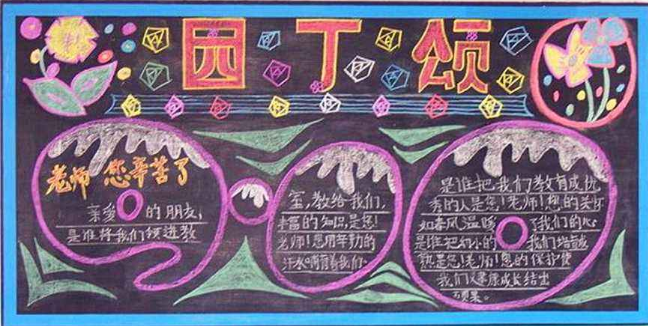 园丁颂
老师 您辛苦了
亲爱的朋友,
是谁将我们领进教
室,教给我们,
丰富的知识,是您!
老师!您用辛勤的
汗水哺育着我们。
是谁把我们教育成优
秀的人是您!老师!您的关怀
如春风温暖了我们的心
是谁把幼小的我们培育成
您!老师!您的保护使
我们健康成长结出
硕果。